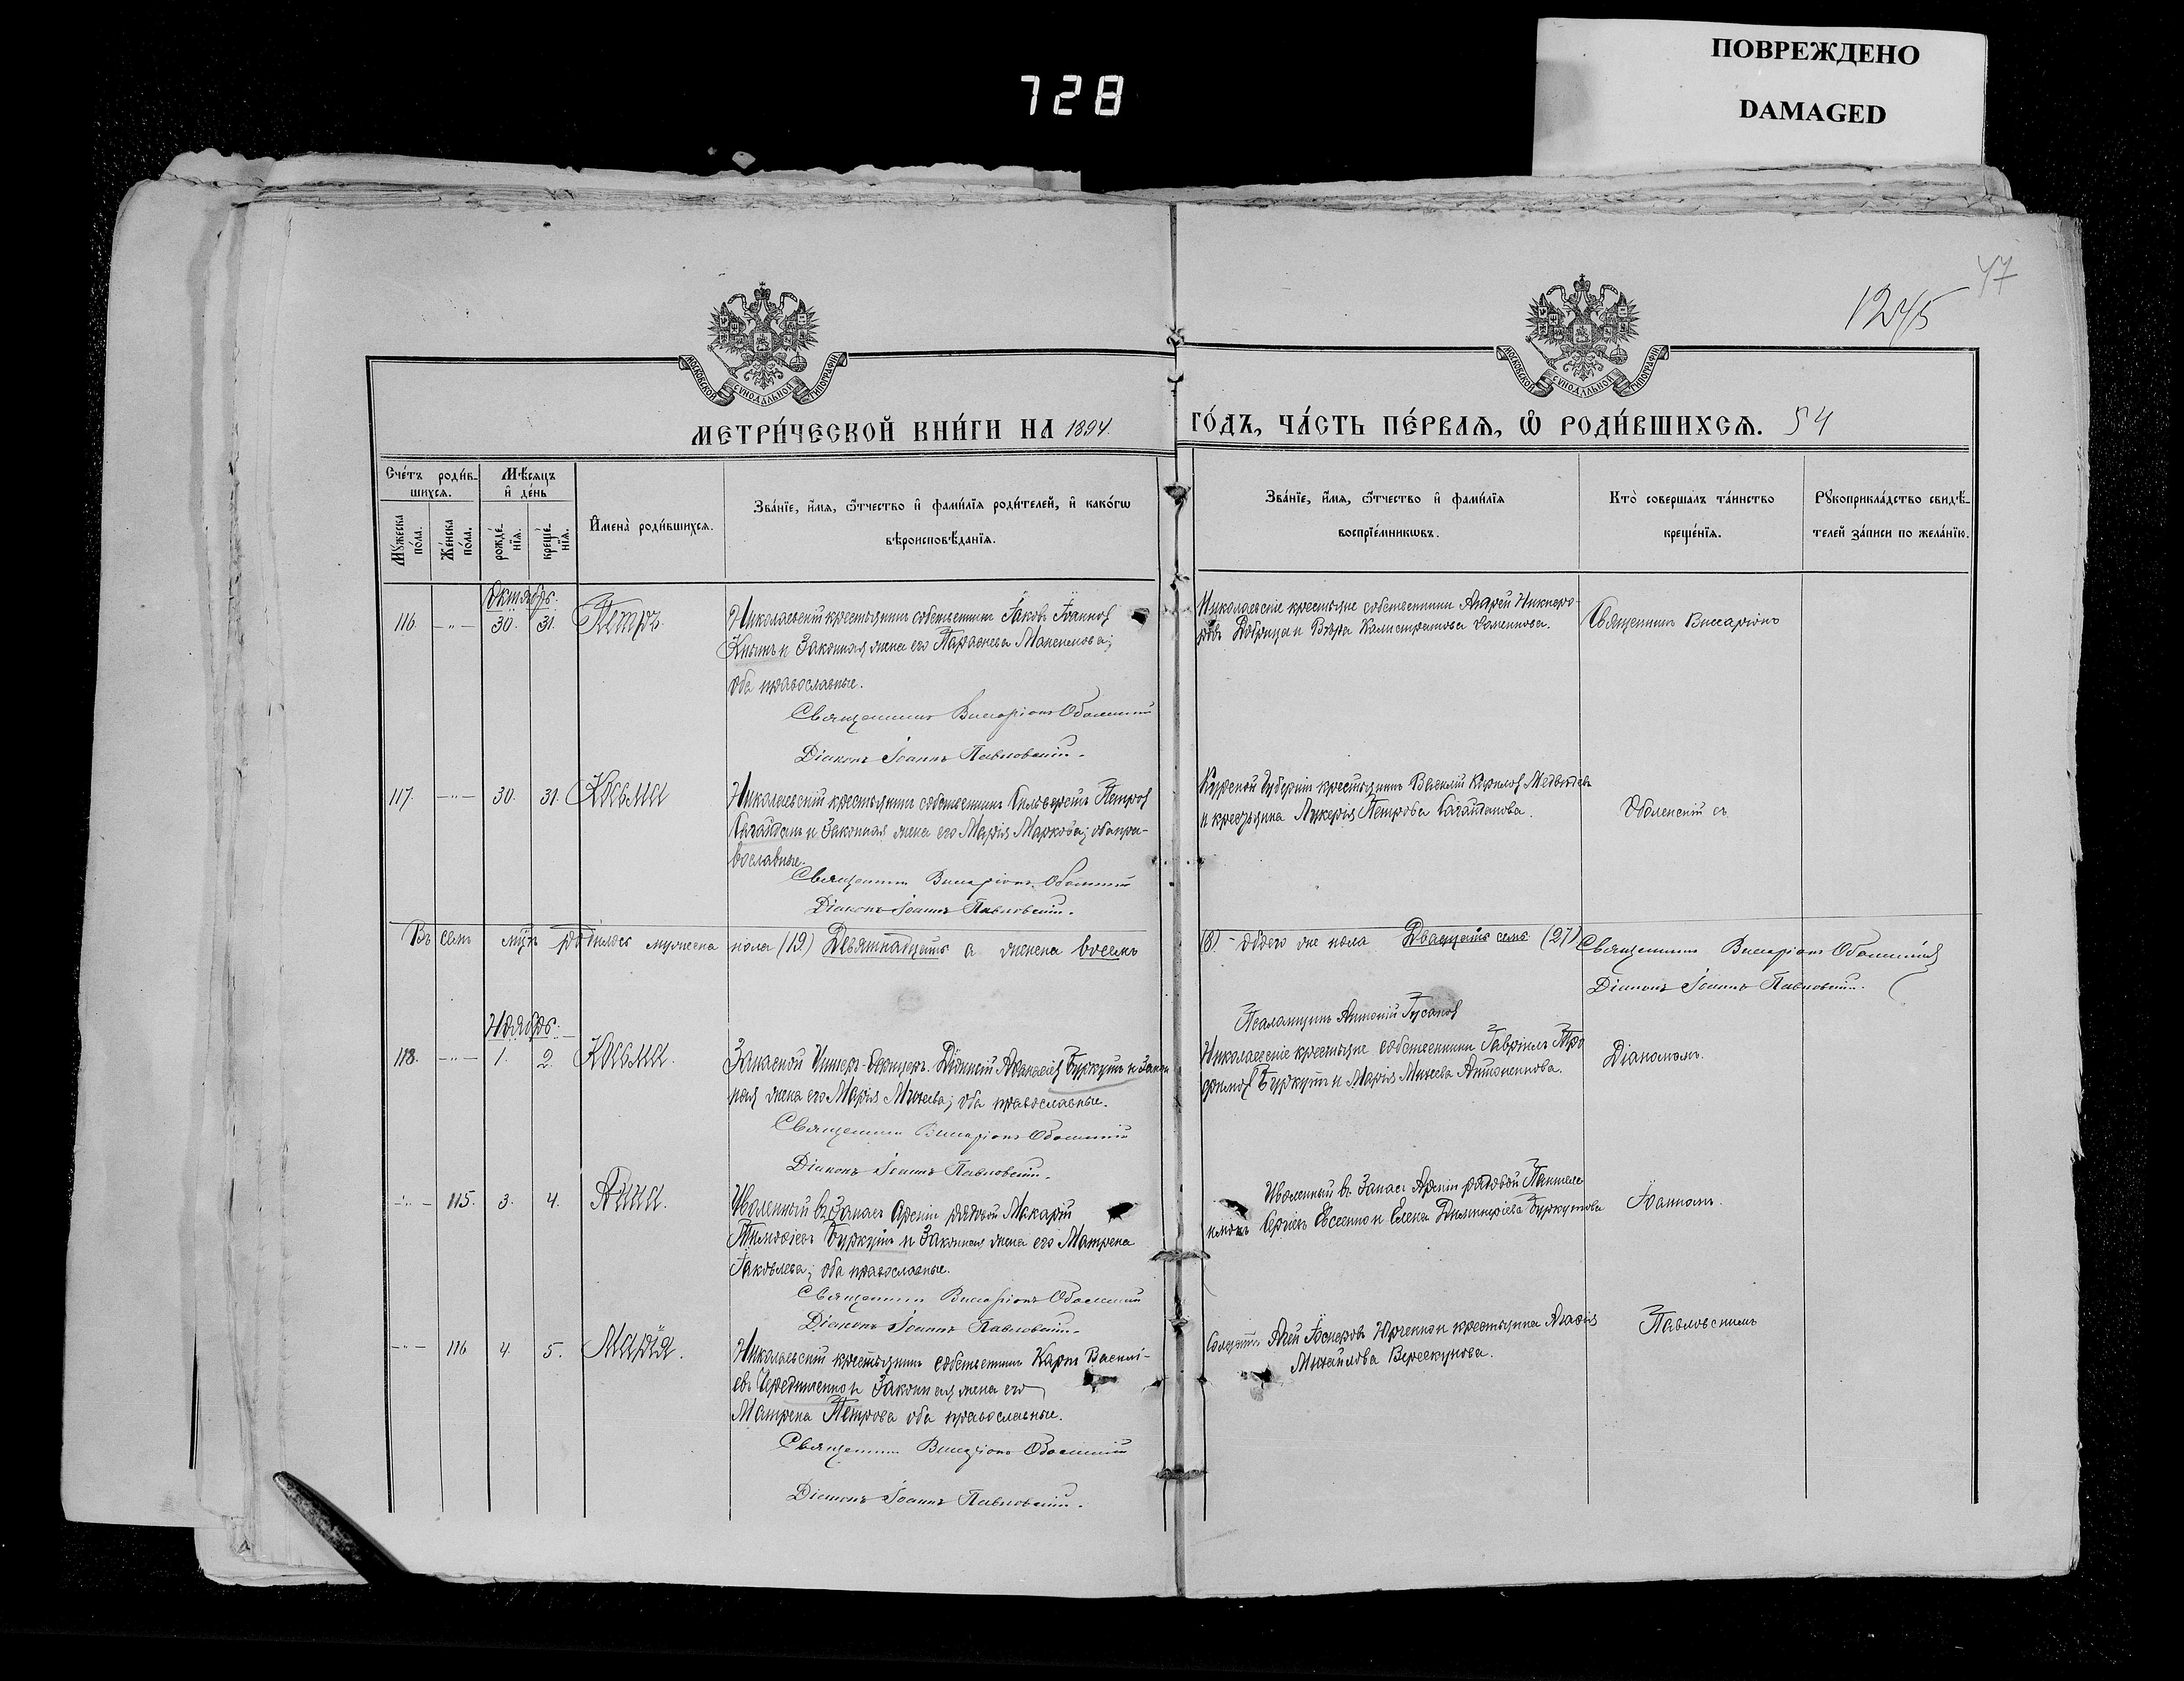 ПОВРЕЖДЕНО
DAMAGED
728
47
1245
МОСКОВСКОЙ СѴНОДАЛЬНОЙ ТИПОГРАФІИ
МОСКОВСКОЙ СѴНОДАЛЬНОЙ ТИПОГРАФІИ
МЕТРИ́ЧЕСКОЙ КНИ́ГИ НА 1894.
ГО́ДЪ, ЧА́СТЬ ПЕ́РВАЯ, Ѡ РОДИ́ВШИХСЯ. 54
Сче́тъ роди́в-
шихся.
Мѣ́сяцъ
и҆ де́нь
Мꙋ́жеска
по́ла.
Же́нска
по́ла.
рожде́-
нїя.
креще́-
нїя.
И҆мена̀ роди́вшихся.
Зва́нїе, и҆́мя, ѻ҆́тчество и҆ фами́лїя роди́телей, и҆ како́гѡ
вѣроисповѣ́данїя.
Зва́нїе, и҆́мя, ѻ҆́тчество и҆ фами́лїя
воспрїе́мникѡвъ.
Кто̀ соверша́лъ та́инство
креще́нїя.
Рꙋкоприкла́дство свидѣ́-
телей за́писи по жела́нїю.
Октябрь.
116. — " — 30. 31. Петръ
Николаевскій крестьянинъ собственникъ Іаковъ Іоанновъ
и законная жена его Параскева
оба православные.
Священникъ Виссаріонъ Оболенскій
Діаконъ Іоаннъ Павловскій.
Николаевскіе крестьяне собственники Андрей
и Вѣра Калистратова
Священникъ Виссаріонъ
117. — " — 30. 31. Косьма
Николаевскій крестьянинъ собственникъ Петровъ
и законная жена его Марія Маркова; оба пра-
вославные.
Священникъ Виссаріонъ Оболенскій
Діаконъ Іоаннъ Павловскій.
Курской губерніи крестьянинъ Василій Медведевъ
и крестьянка Лукерія Петрова
Оболенскій съ
Въ семъ м-цѣ родилось мужеска пола (19) девятнадцать а женска восемь
(8) - обоего же пола Двадцать семь (27)
Священникъ Виссаріонъ Оболенскій
Діаконъ Іоаннъ Павловскій.
Ноябрь.
Псаломщикъ Антоній
118. — " — 1. 2. Косьма.
Запасной Унтеръ-Офицеръ Діонисій Аѳанасіевъ Буркутъ и закон
ная жена его Марія; оба православные.
Священникъ Виссаріонъ Оболенскій
Діаконъ Іоаннъ Павловскій.
Николаевскіе крестьяне собственники Гавріилъ Тро
фимовъ Буркутъ и Марія Антоненкова.
Діакономъ.
— " — 115. 3. 4. Анна.
Уволенный въ запасъ Арміи рядовой Макарій
Тимоѳеевъ Буркутъ и законная жена его Матрена
Іаковлева; оба православные.
Священникъ Виссаріонъ Оболенскій
Діаконъ Іоаннъ Павловскій.
Уволенный въ запасъ Арміи рядовой Пантеле
имонъ и Елена Димитріева Буркутова
Іоанномъ.
— " — 116 4. 5. Марія.
Николаевскій крестьянинъ собственникъ Карпъ Василі-
евъ Чередниченко и законная жена его
Матрена Петрова оба православные.
Священникъ Виссаріонъ Оболенскій
Діаконъ Іоаннъ Павловскій.
Юрченко и крестьянка
Михайлова
Павловскимъ